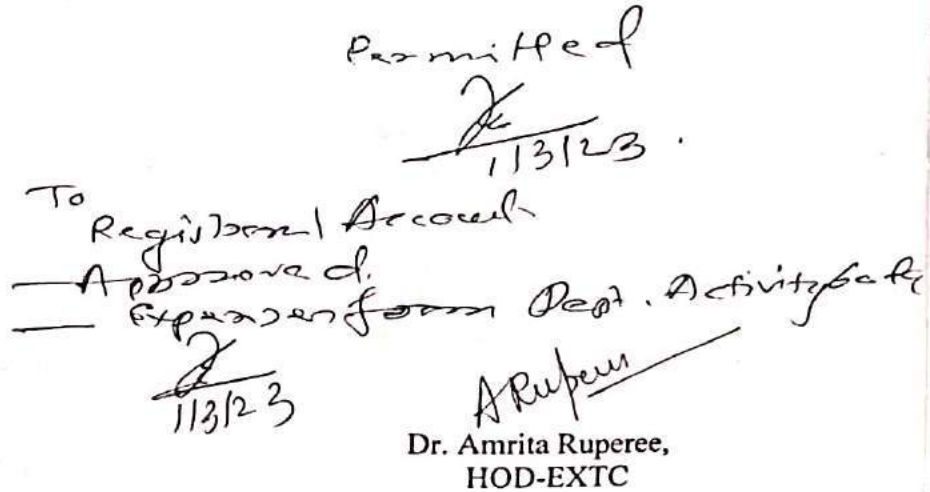 Permitted
1/3/23.
To
Registrar / Account
— Approved.
— Expenses from Dept. Activity
1/3/23
ARuperee
Dr. Amrita Ruperee,
HOD-EXTC